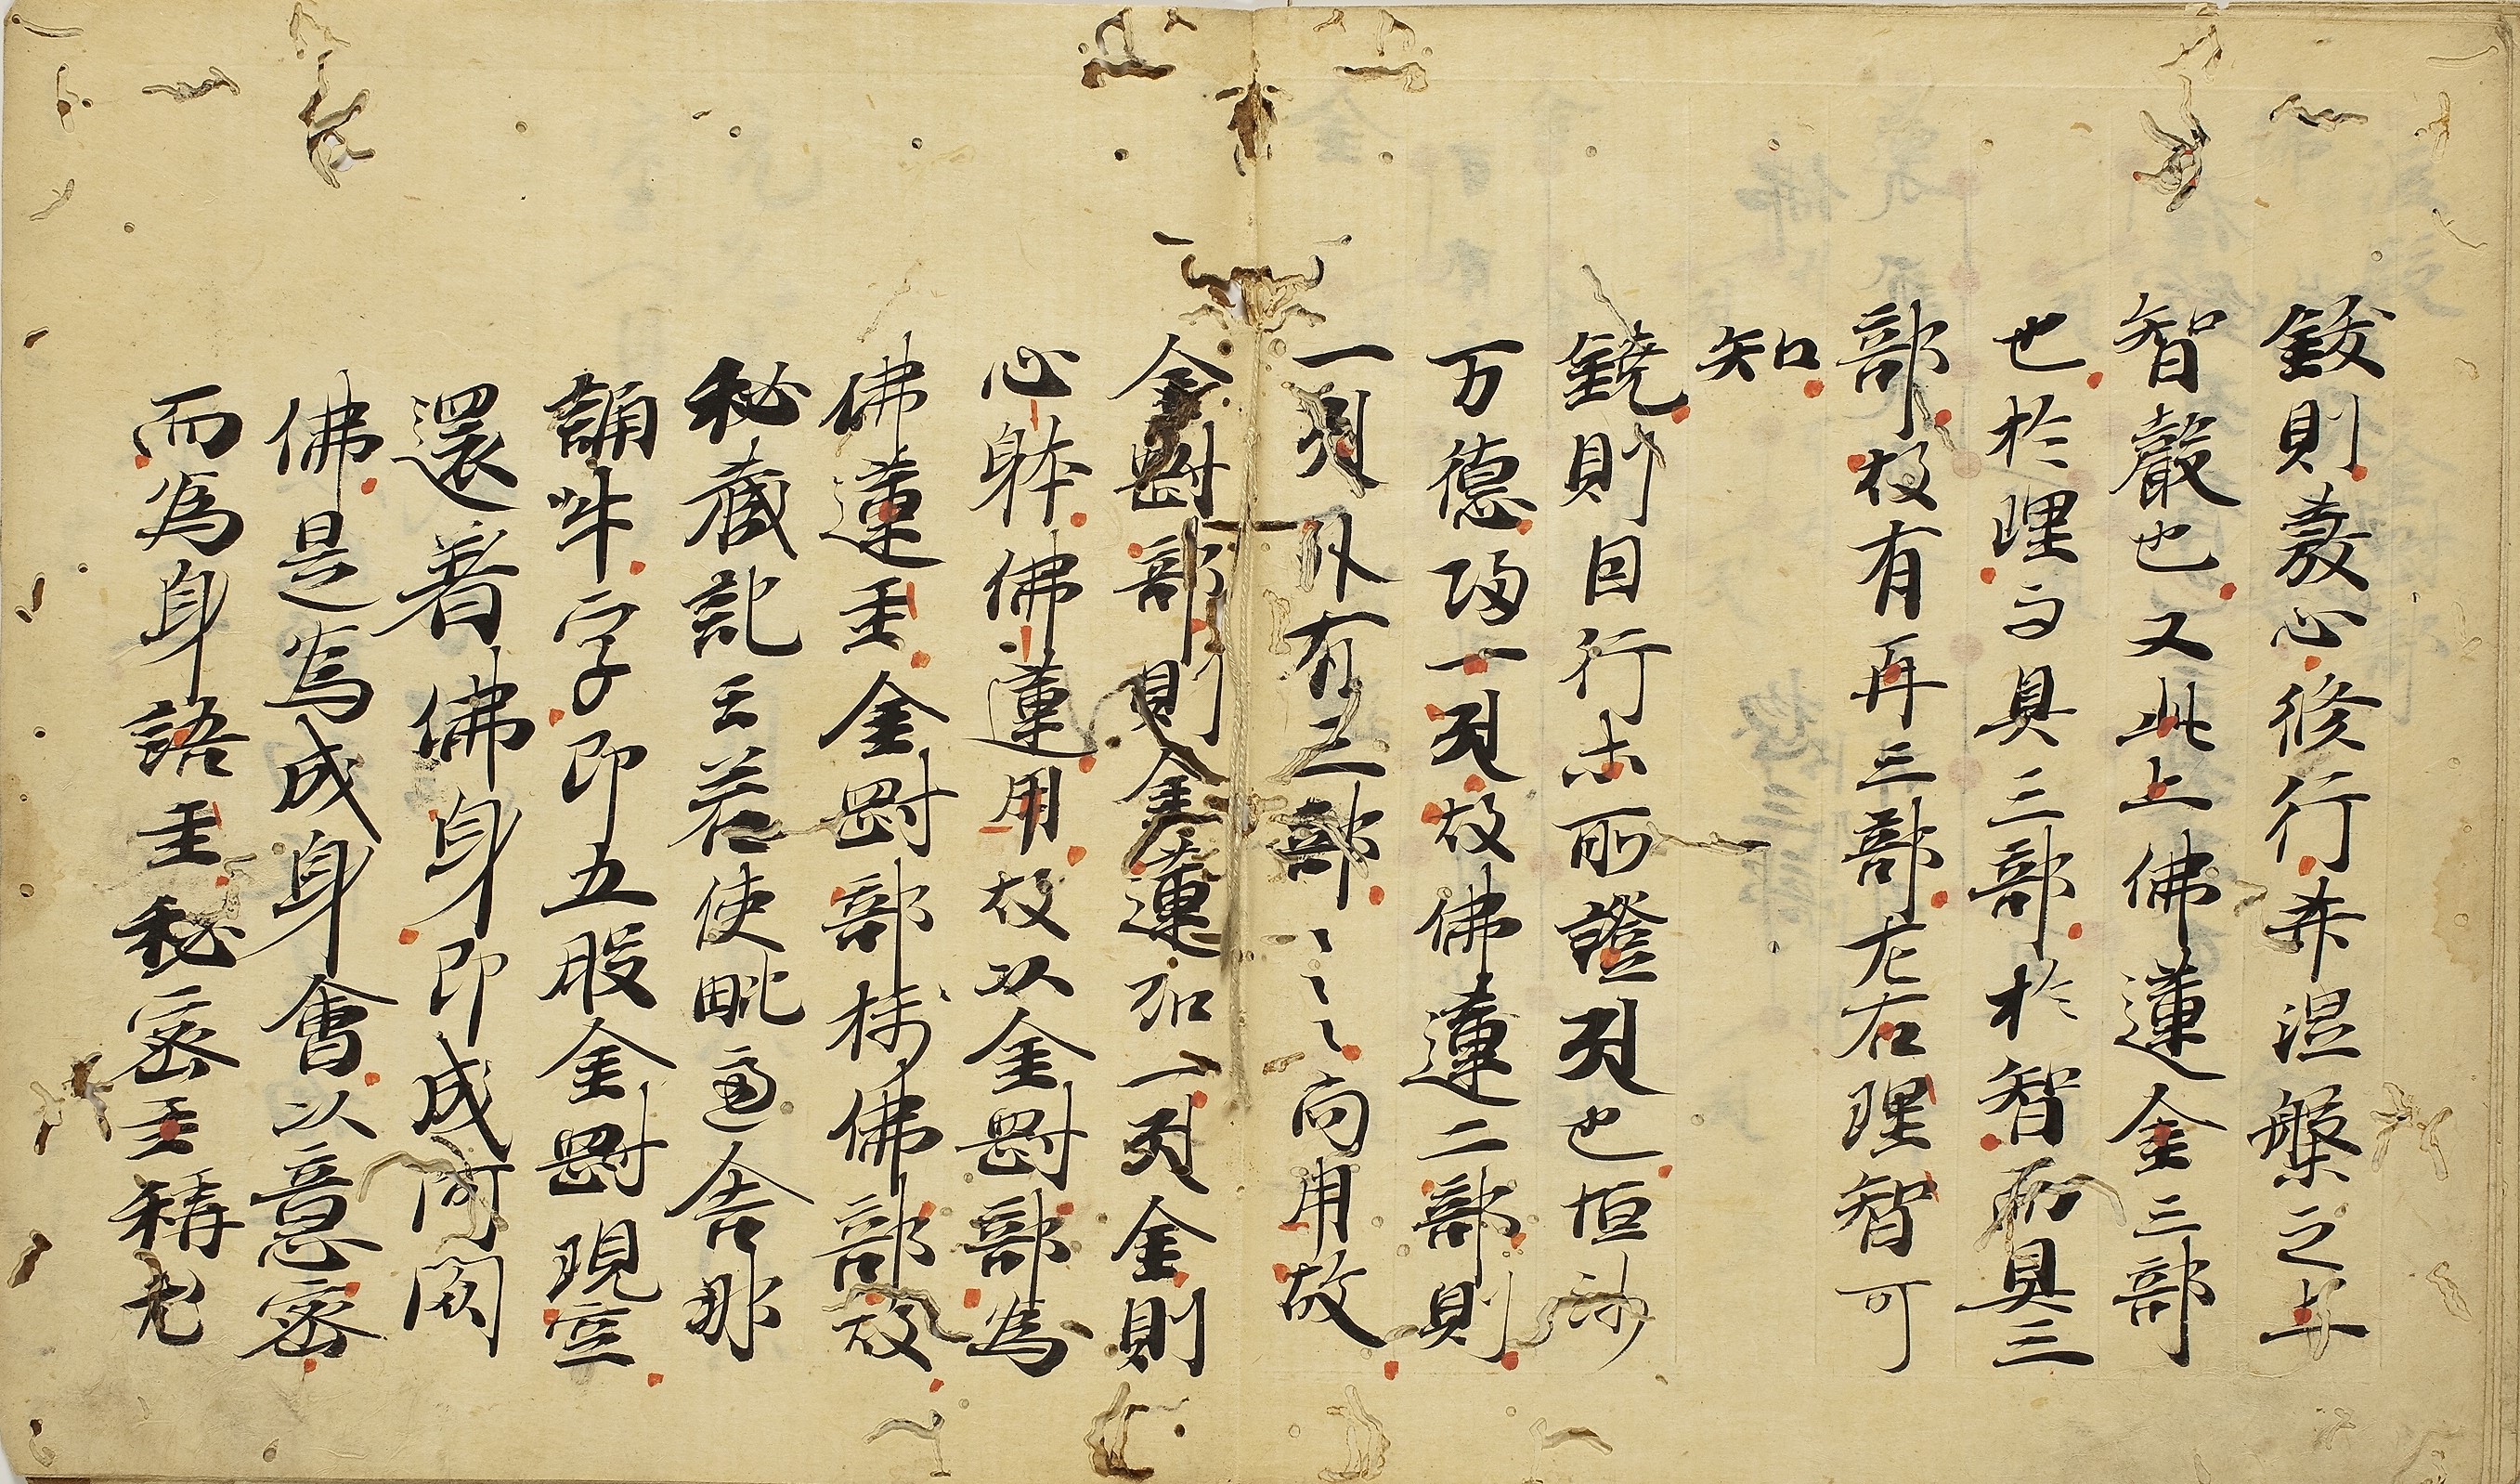 鈸則蓡心修行幷涅槃之𡈽
智嚴也又此上佛蓮金三部
也於理即具三部於智而具三
部故有再三部左右理智可
知
鐃則因行未所證引也恒沙
万德歸一引故佛蓮二部則
一引外有三部〻〻〻〻向用故
金剛部則金蓮加一引金則
心躰佛蓮用故以金剛部為
佛蓮主金剛部持佛部故
秘蔵記云若使毗盧舍那
誦吽字即五股金剛現壇
還着佛身即成阿閦
佛是為成身會以意密
而為身語主秘密主稱也